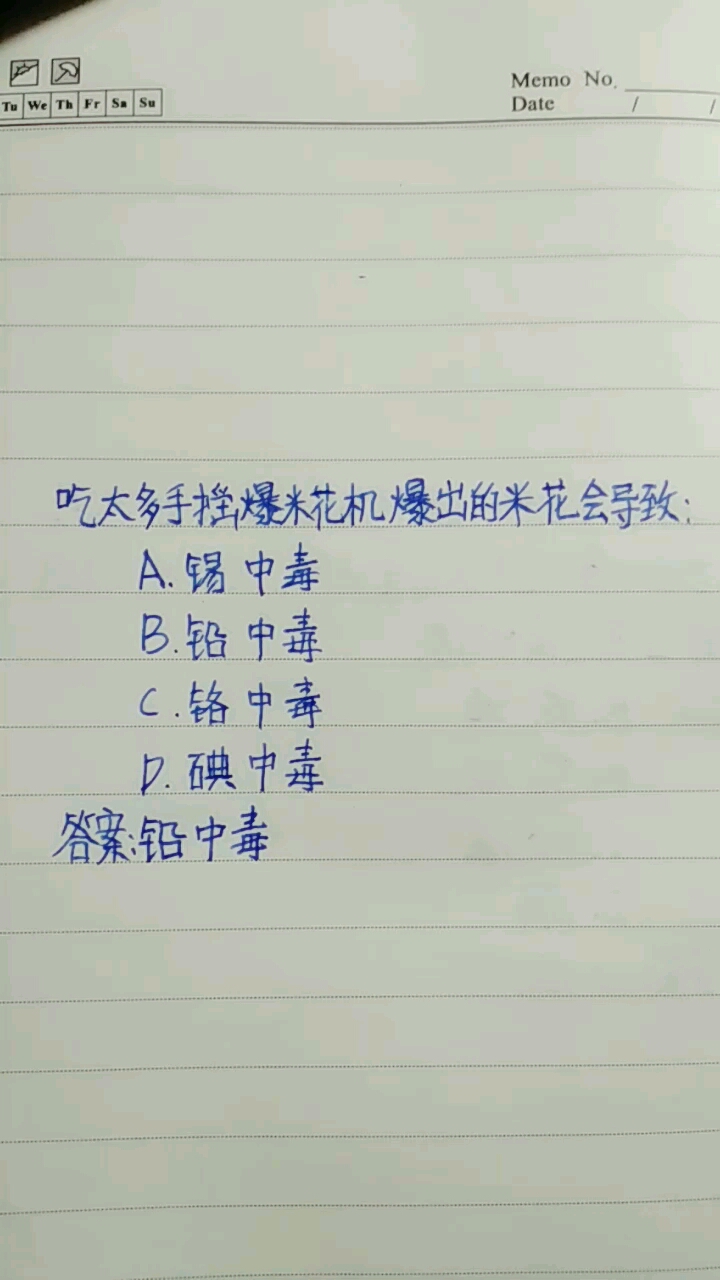 Memo No.
Date / /
Tu We Th Fr Sa Su
吃太多手摇爆米花机爆出的米花会导致:
A.锡中毒
B.铅中毒
C.铬中毒
D.碘中毒
答案:铅中毒